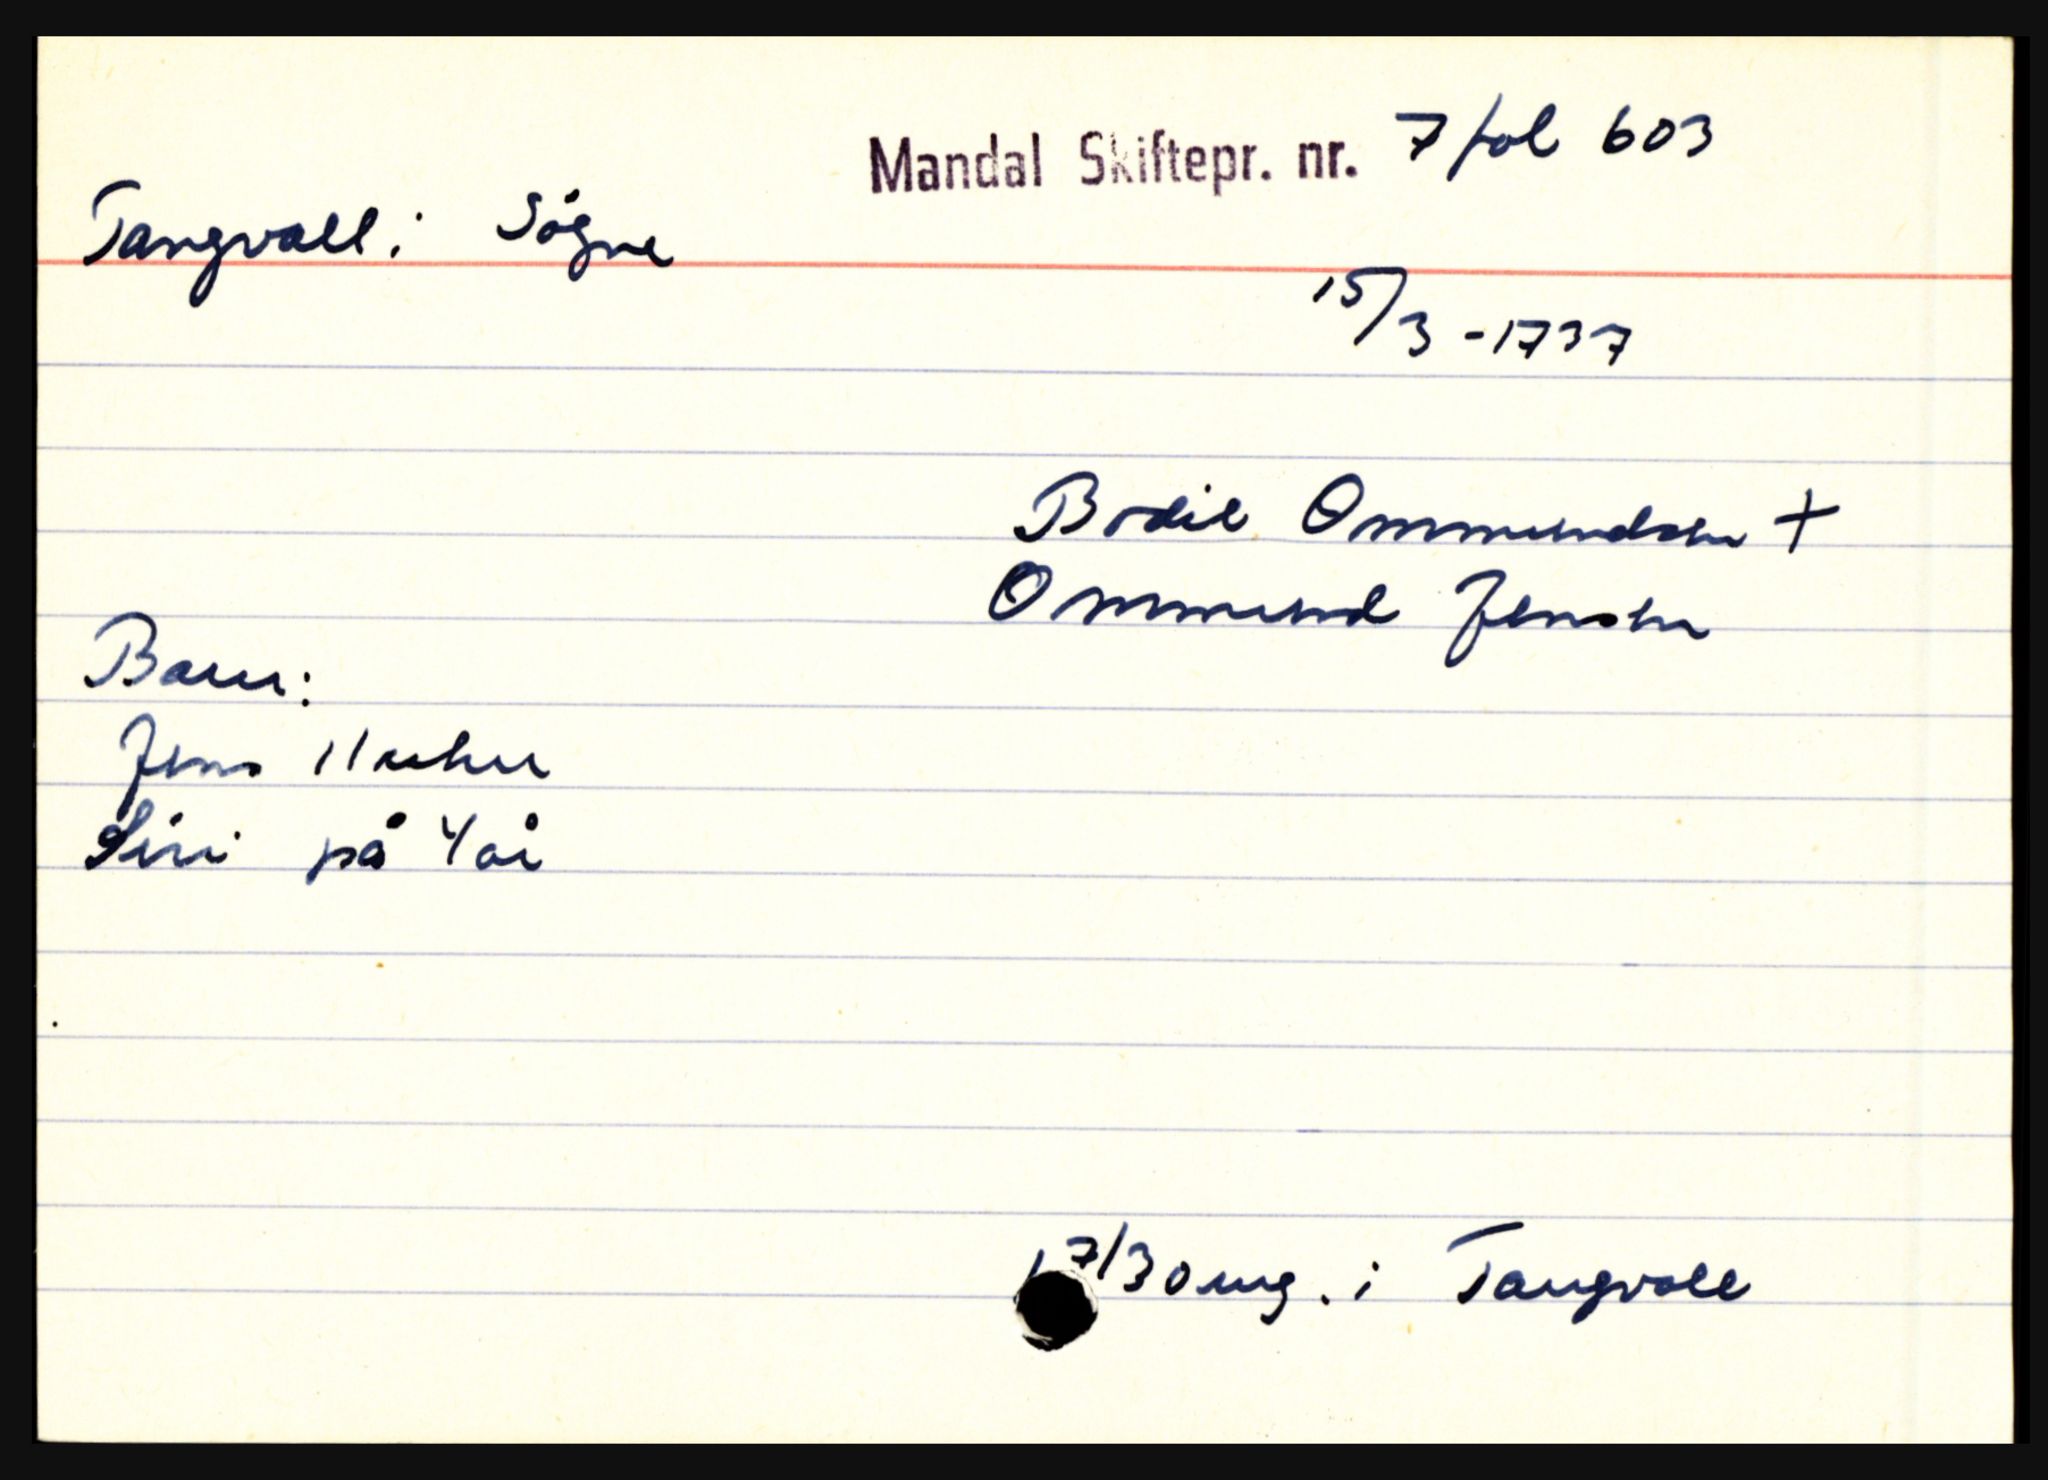 Mandal Skiftepr. nr. 7 fol 603
Tangvall i Søgne
15/3 - 1737
Bodil Ommundsen +
Ommund Jensen
Barn:
Jens 11 uker
Siri på 4 år
17/30 ung. i Tangvall